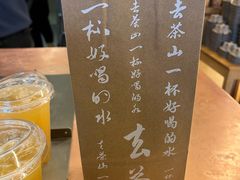 去茶山 一杯好喝的水
去茶山 一杯好喝的水
去茶
一杯好喝的水
去茶山 一
一杯